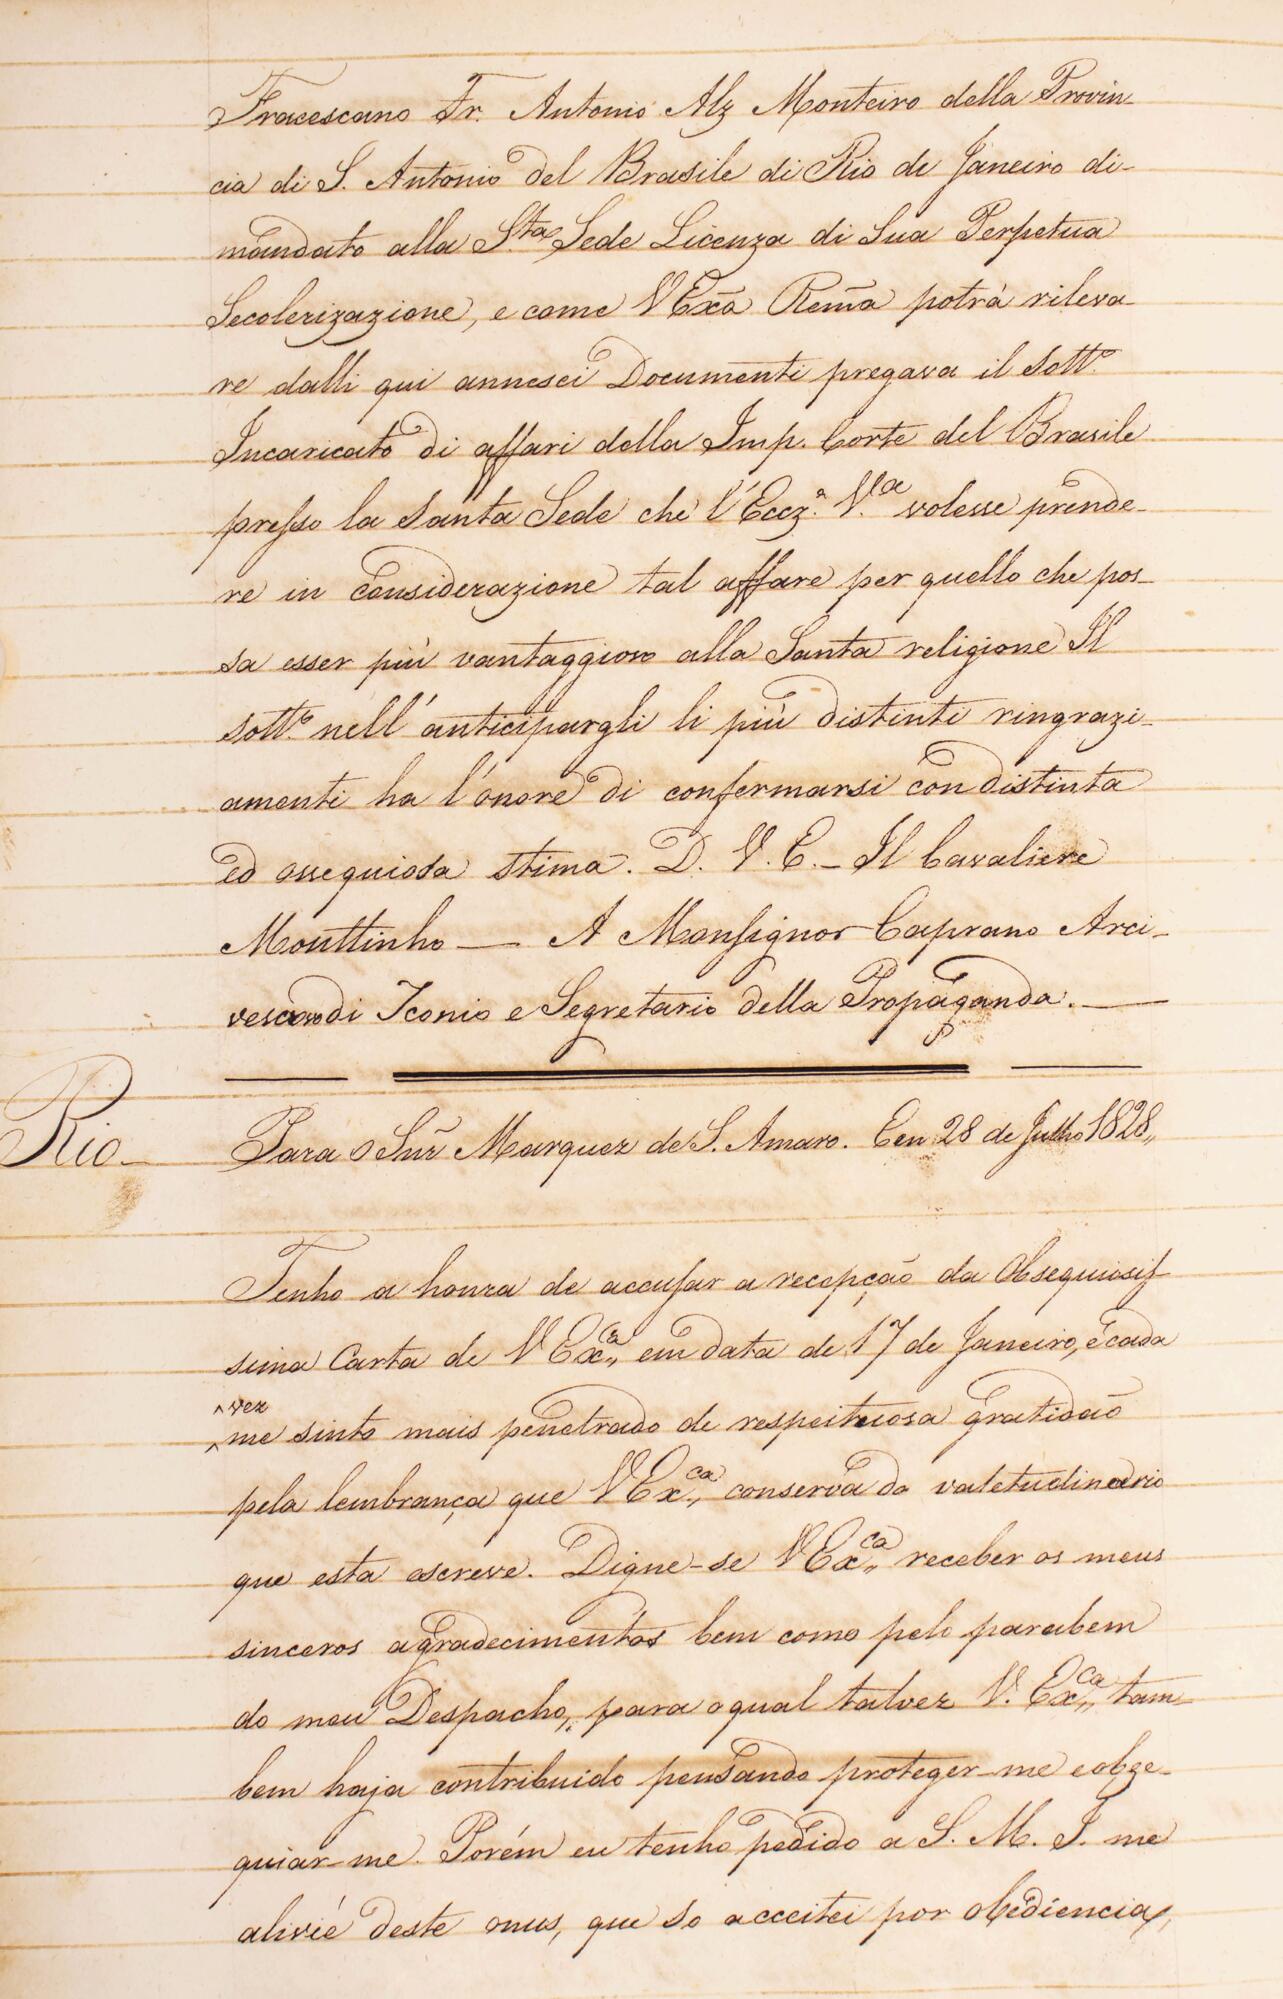 Fracescano Fr. Antonio Alz Monteiro della Provin-
cia di S. Antonio del Brasile di Rio de Janeiro di-
mandato alla S.ta Sede Licenza di Sua Perpetua
Secolerizazione, e come V Exã Remã potrà rileva-
re dalli qui annesci Documenti pregava il Sott.o
Incaricato di affari della Imp. Corte del Brasile
presso la Santa Sede che l'Eccz.a V.a volesse prende-
re in considerazione tal affare per quello che pos-
sa esser più vantaggioso alla Santa religione Il
sott.o nell'anticipargli li più distinti ringrazi-
amenti ha l'onore di confermarsi con distinta
ed ossequiosa stima. D. V. E. - Il Cavaliere
Mouttinho — A Monsignor Caprano Arci-
vescovo di Iconio e Segretario della Propaganda. —
Rio-
Para o Snr̃ Marquez de S. Amaro. Em 28 de Julho 1828,,
Tenho a honra de accusar a recepção da Obsequiosis-
sima Carta de V Ex.ca,, em data de 17 de Janeiro, e cada
vez
me sinto mais penetrado de respeituosa gratidaõ
pela lembrança que V Ex.ca,, conserva do valetudinario
que esta escreve. Digne-se V Ex.ca,, receber os meus
sinceros agradecimentos bem como pelo parabem
do meu Despacho, para o qual talvez V. Ex.ca,, tam-
bem haja contribuido pensando proteger-me e obze-
quiar-me. Porém eu tenho pedido a S. M. I. me
alivié deste onus, que so acceitei por obediencia,